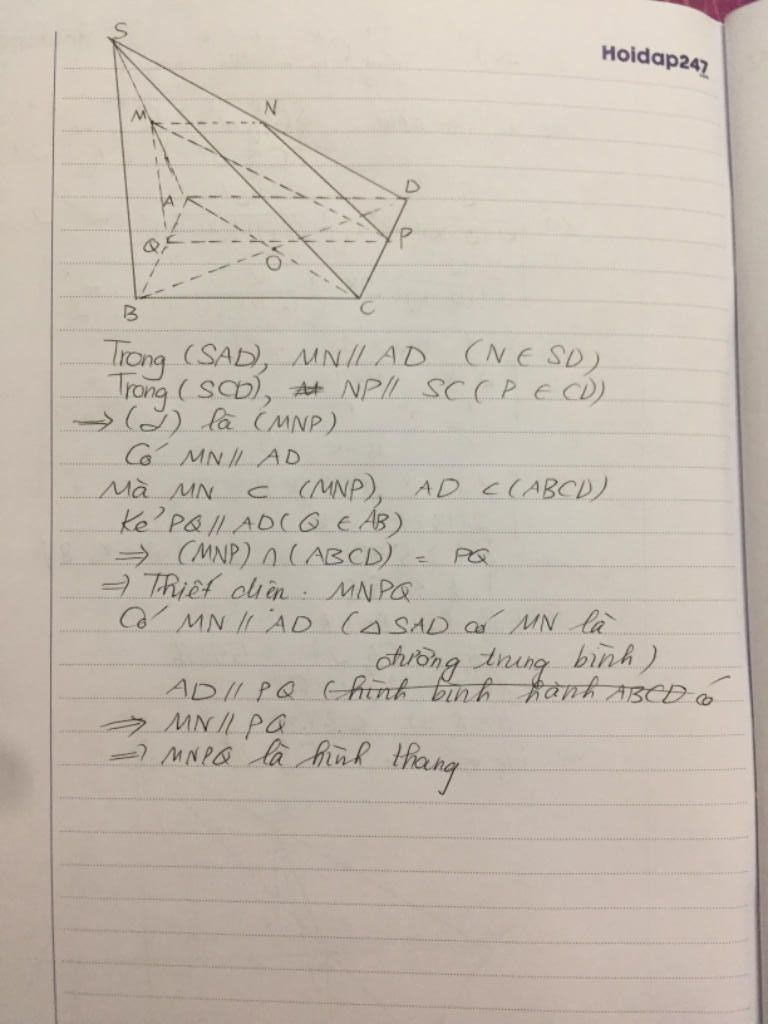 Hoidap247
S
M
N
A
D
Q
P
O
B
C
Trong (SAD), MN // AD (N ∈ SD)
Trong (SCD), NP // SC (P ∈ CD)
→ (α) là (MNP)
Có MN // AD
Mà MN ⊂ (MNP), AD ⊂ (ABCD)
Kẻ PQ // AD (Q ∈ AB)
⇒ (MNP) ∩ (ABCD) = PQ
⇒ Thiết diện: MNPQ
Có MN // AD (△SAD có MN là
đường trung bình)
AD // PQ (hình bình hành ABCD có
⇒ MN // PQ
⇒ MNPQ là hình thang